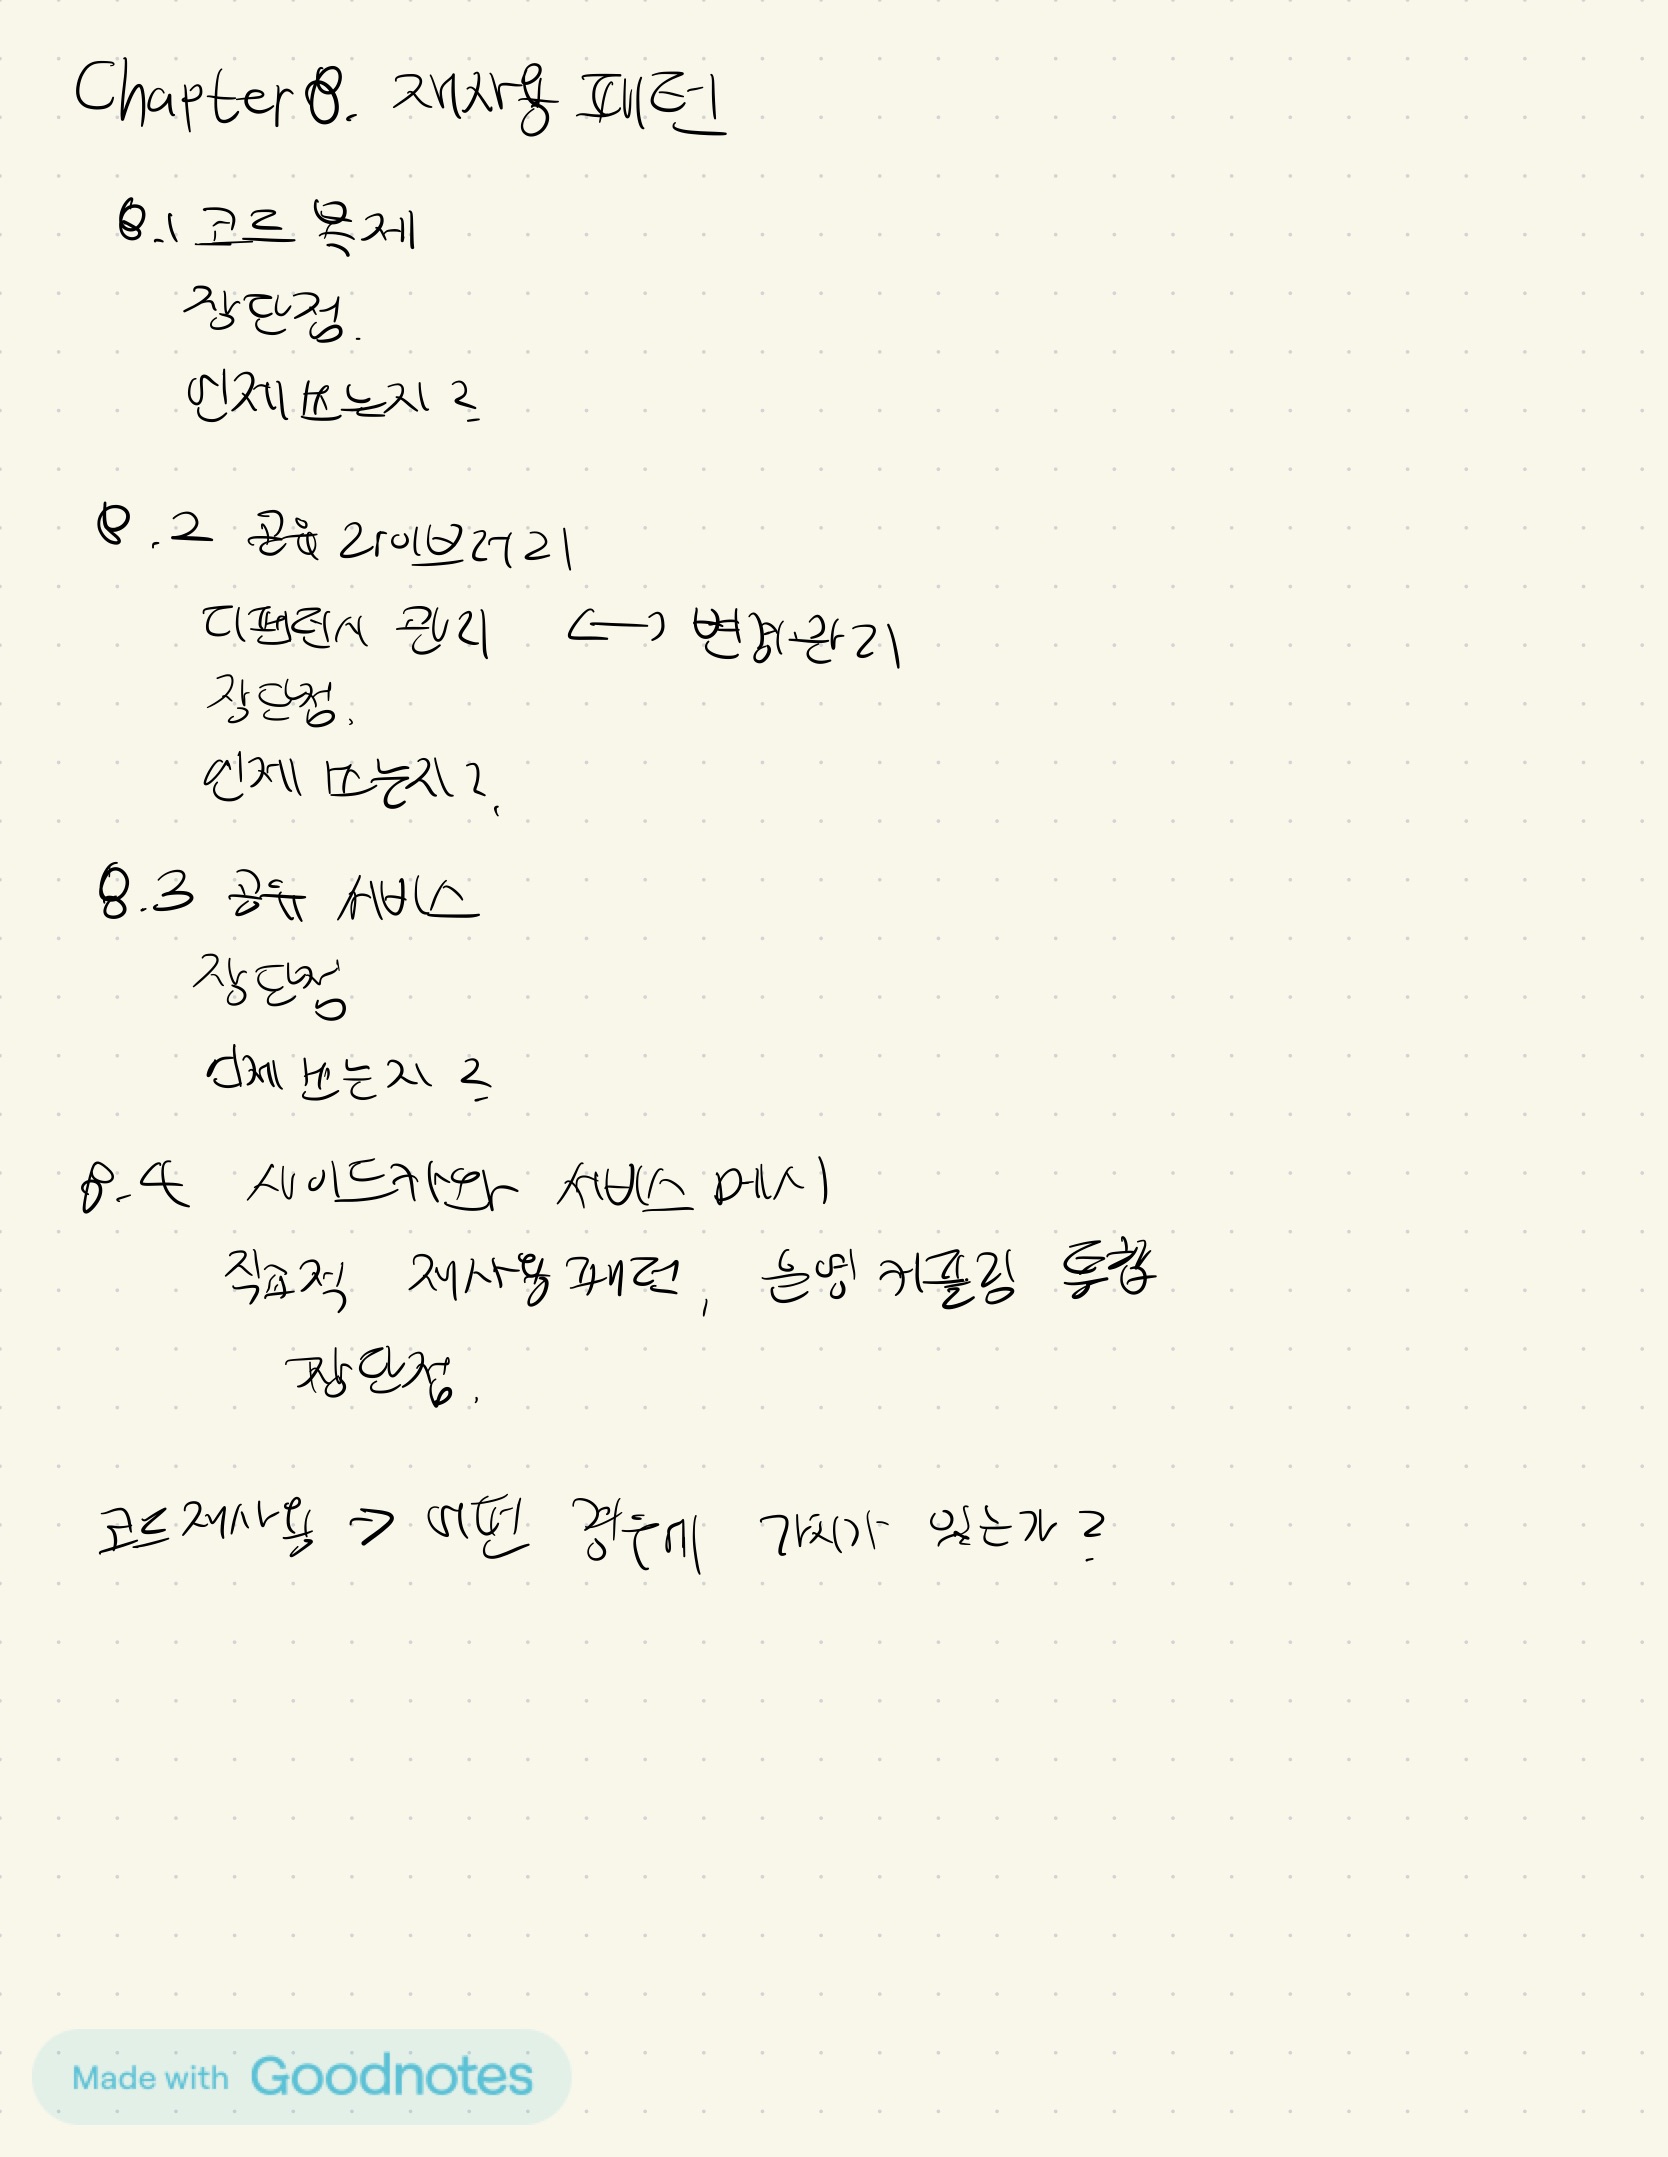 Chapter 8. 재사용 패턴
8.1 코드 복제
장단점.
언제 쓰는지?
8.2 공유 라이브러리
디펜던시 관리 <-> 변경관리
장단점.
언제 쓰는지?
8.3 공유 서비스
장단점
언제 쓰는지?
8.4 사이드카와 서비스 메시
직교적 재사용 패턴, 운영 커플링 통합
장단점.
코드 재사용 → 어떤 경우에 가치가 있는가?
Made with Goodnotes